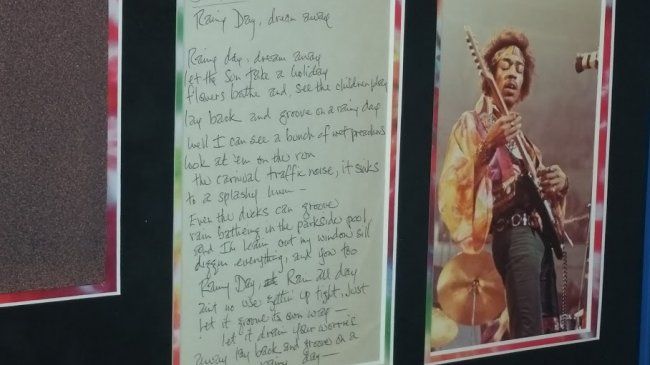 Rainy Day, dream away
Rainy day, dream away
let the Sun take a holiday
flowers bathe and, see the children play
lay back and groove on a rainy day
well I can see a bunch of wet preachers
look at 'em on the run
the carnival traffic noise, it sinks
to a splashy hum —
Even the ducks can groove
rain bathering in the parkside pool,
and I'm leanin out my window sill
diggin everything, and you too
Rainy Day, Rain all day
aint no use gettin up tight, Just
let it groove its own way —
let it drain your worries
away lay back and groove on a
day —